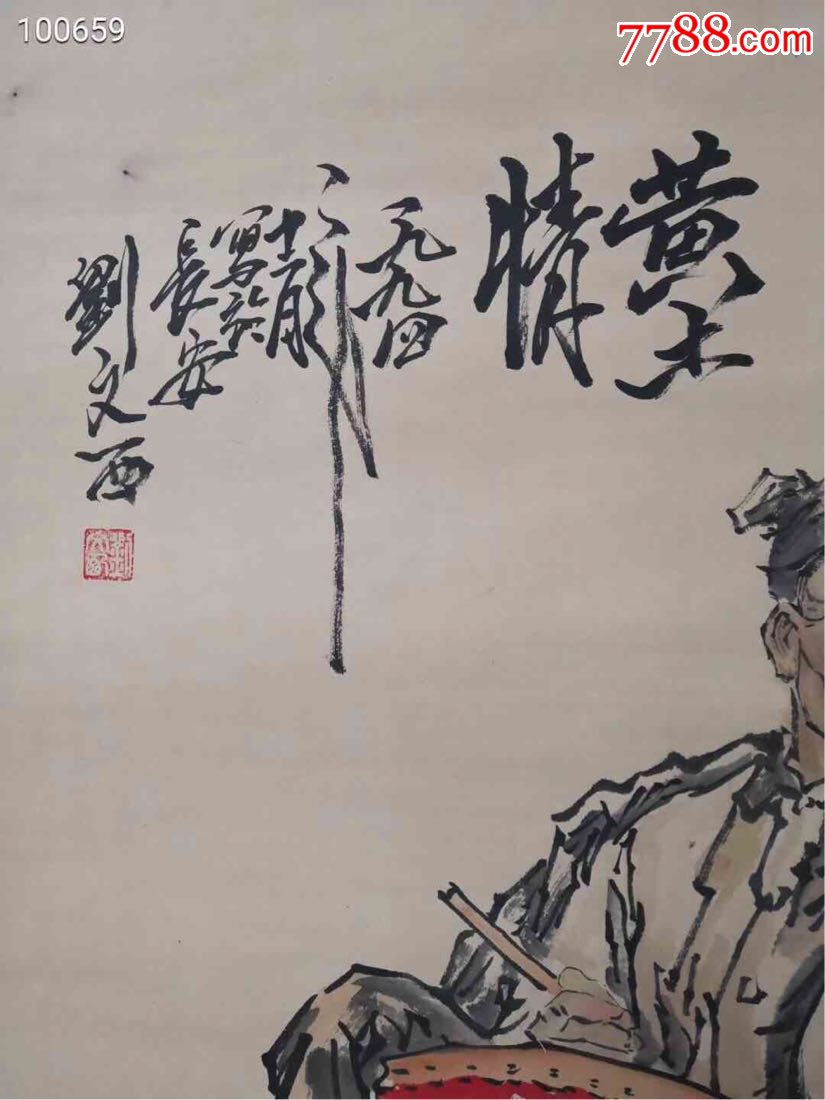 100659
7788.com
黄土
情
一九九四
寫於
長安
劉文西